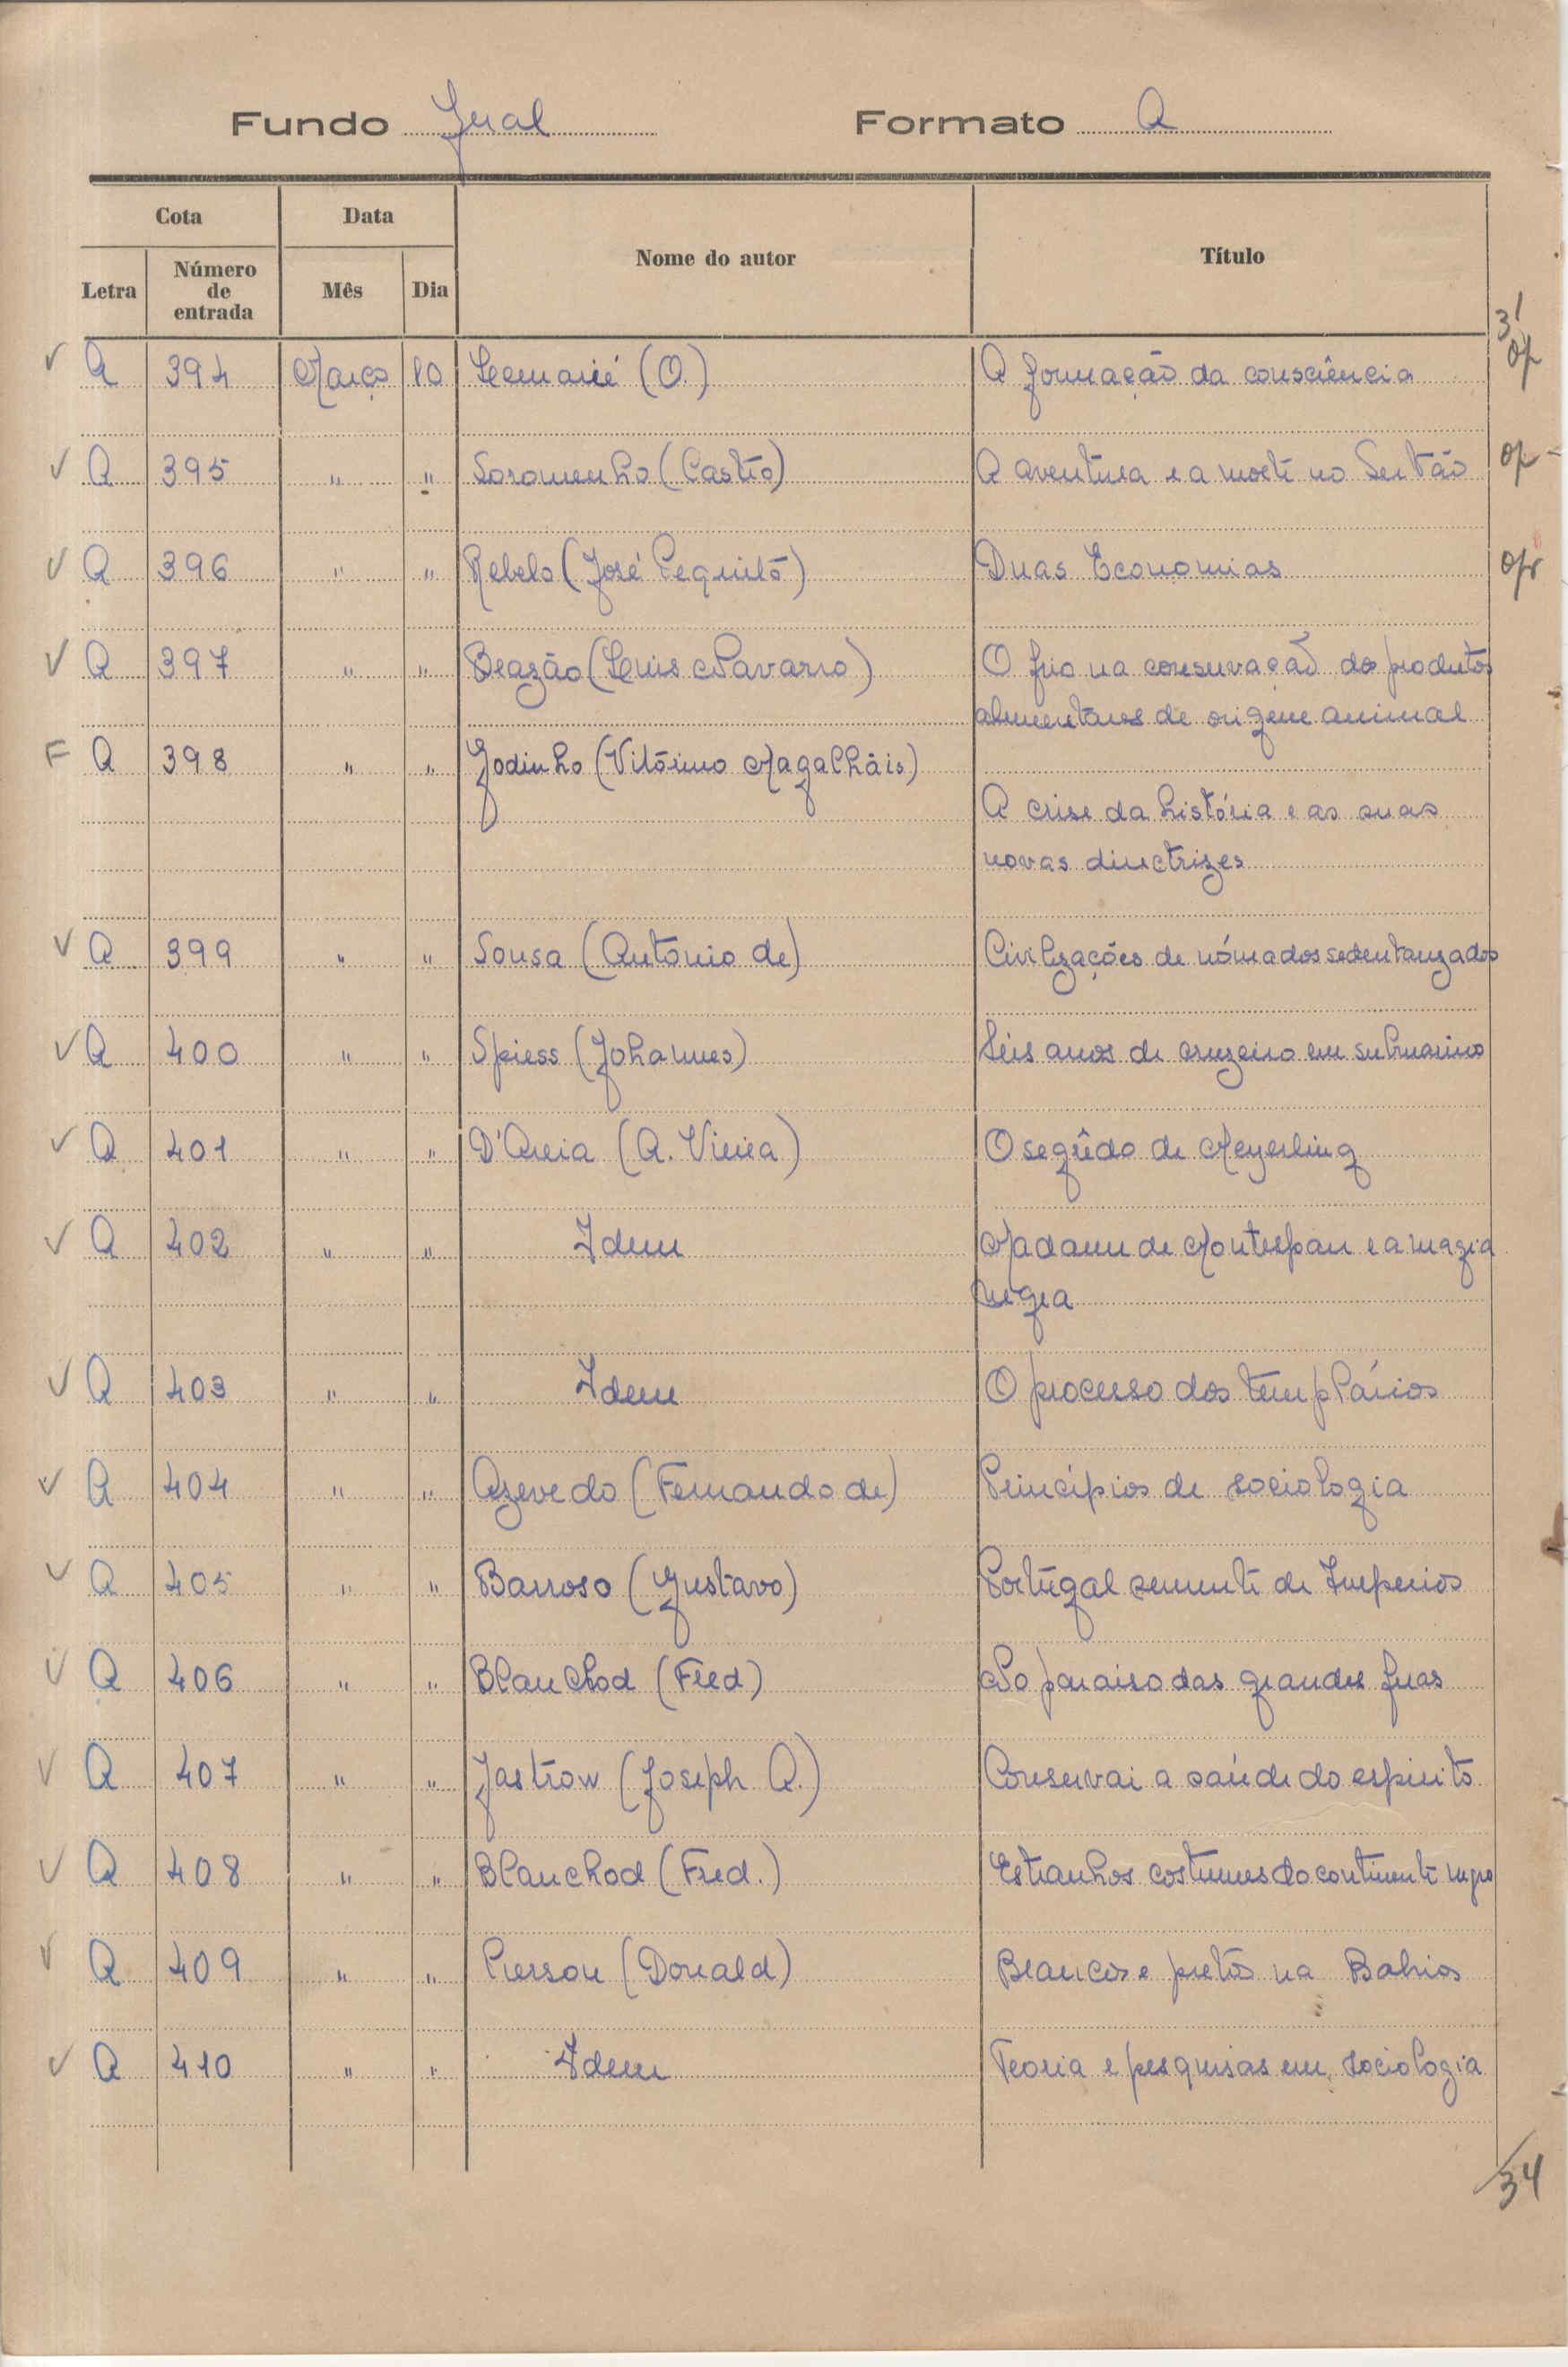 Fundo Geral Formato A
Cota Data Nome do autor Título
Letra Número de entrada Mês Dia
31
V A 394 Março 10 Lemarié (O.) A formação da consciência op
V A 395 " " Soromenho (Castro) A aventura e a morte no Sertão op -
V A 396 " " Rebelo (José Pequito) Duas Economias op
V A 397 " " Brazão (Luis Navarro) O frio na conservação dos produtos
alimentares de origem animal
F A 398 " " Godinho (Vitórino Magalhãis)
A crise da história e as suas
novas directrizes
V A 399 " " Sousa (António de) Civilizações de nómados sedentarizados
V A 400 " " Spiess (Johannes) Seis anos de cruzeiro em submarino
V A 401 " " D'Areia (A. Vieira) O segrêdo de Meyerling
V A 402 " " Idem Madame de Montespan e a magia
negra
V A 403 " " Idem O processo dos templários
V A 404 " " Azevedo (Fernando de) Princípios de sociologia
V A 405 " " Barroso (Gustavo) Portugal semente de Imperios
V A 406 " " Blanchod (Fred) No paraiso das grandes feras
V A 407 " " Jastrow (Joseph A.) Conservai a saúde do espirito
V A 408 " " Blanchod (Fred.) Estranhos costumes do continente negro
V A 409 " " Pierson (Donald) Brancos e pretos na Bahia
V A 410 " " Idem Teoria e pesquisas em sociologia
34